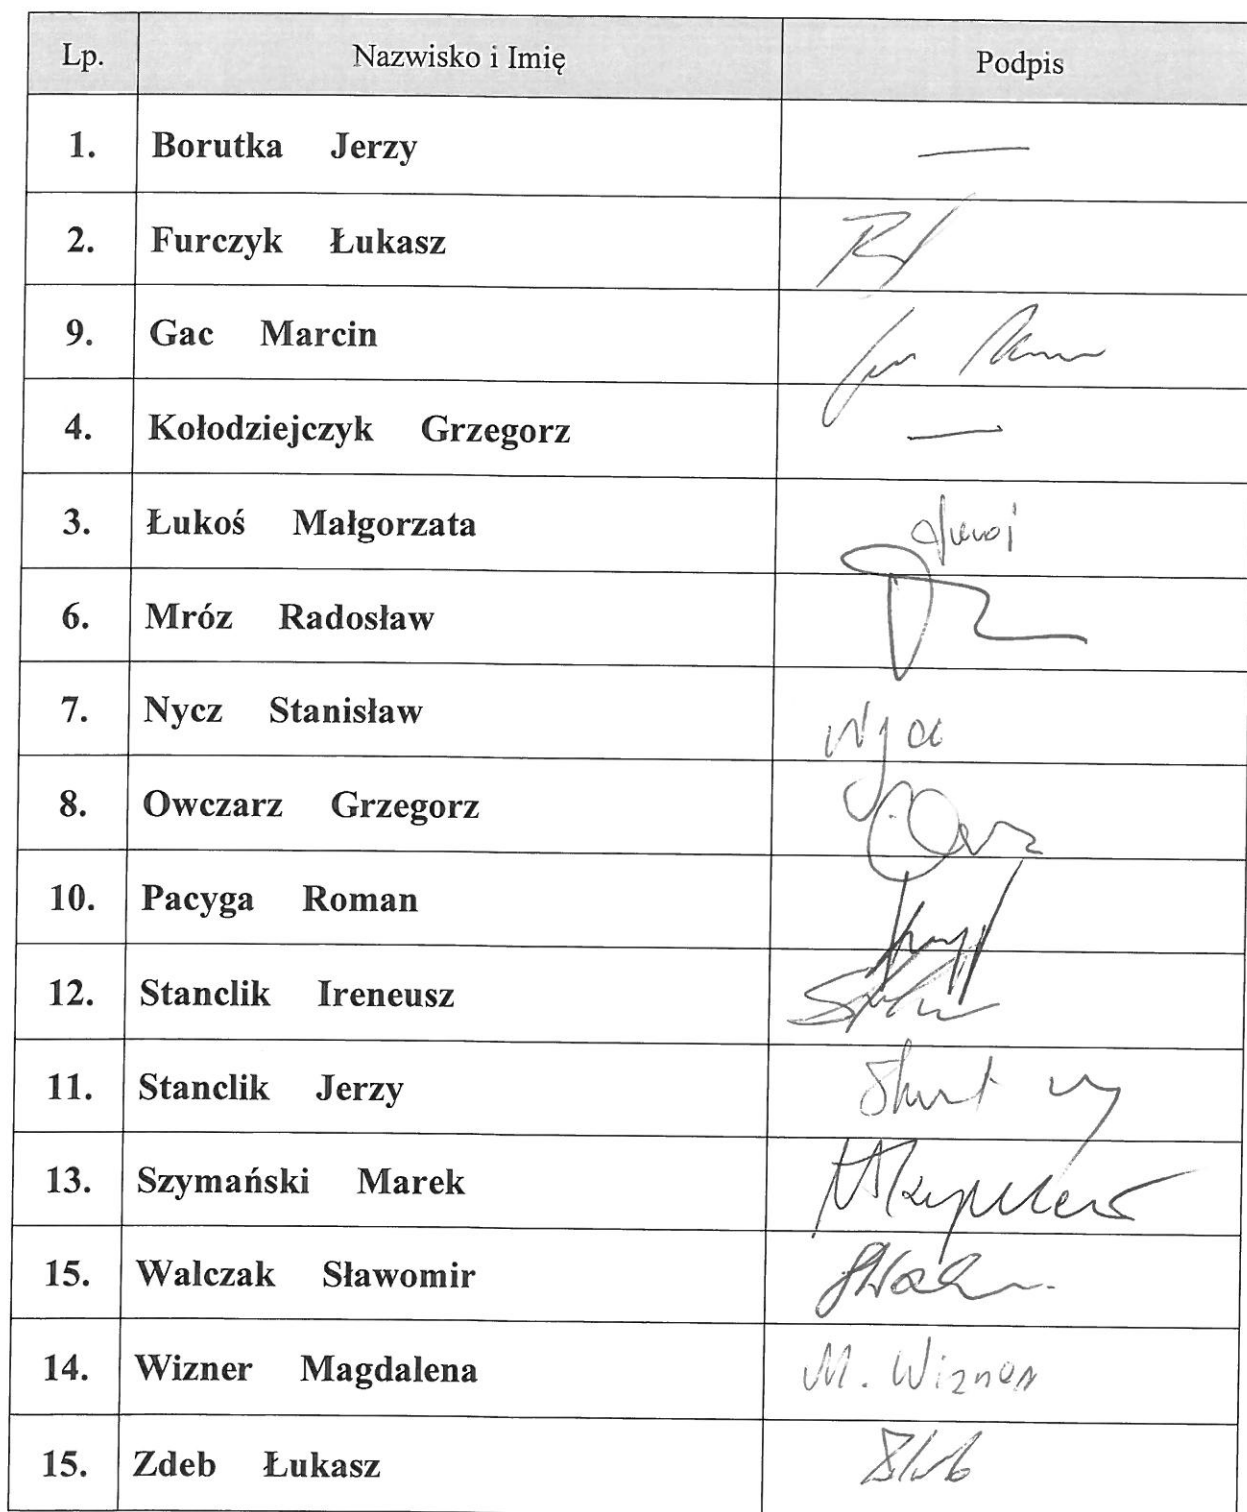 Lp. Nazwisko i Imię Podpis
1. Borutka Jerzy —
2. Furczyk Łukasz
9. Gac Marcin
4. Kołodziejczyk Grzegorz —
3. Łukoś Małgorzata
6. Mróz Radosław
7. Nycz Stanisław
8. Owczarz Grzegorz
10. Pacyga Roman
12. Stanclik Ireneusz
11. Stanclik Jerzy
13. Szymański Marek
15. Walczak Sławomir
14. Wizner Magdalena M. Wizner
15. Zdeb Łukasz